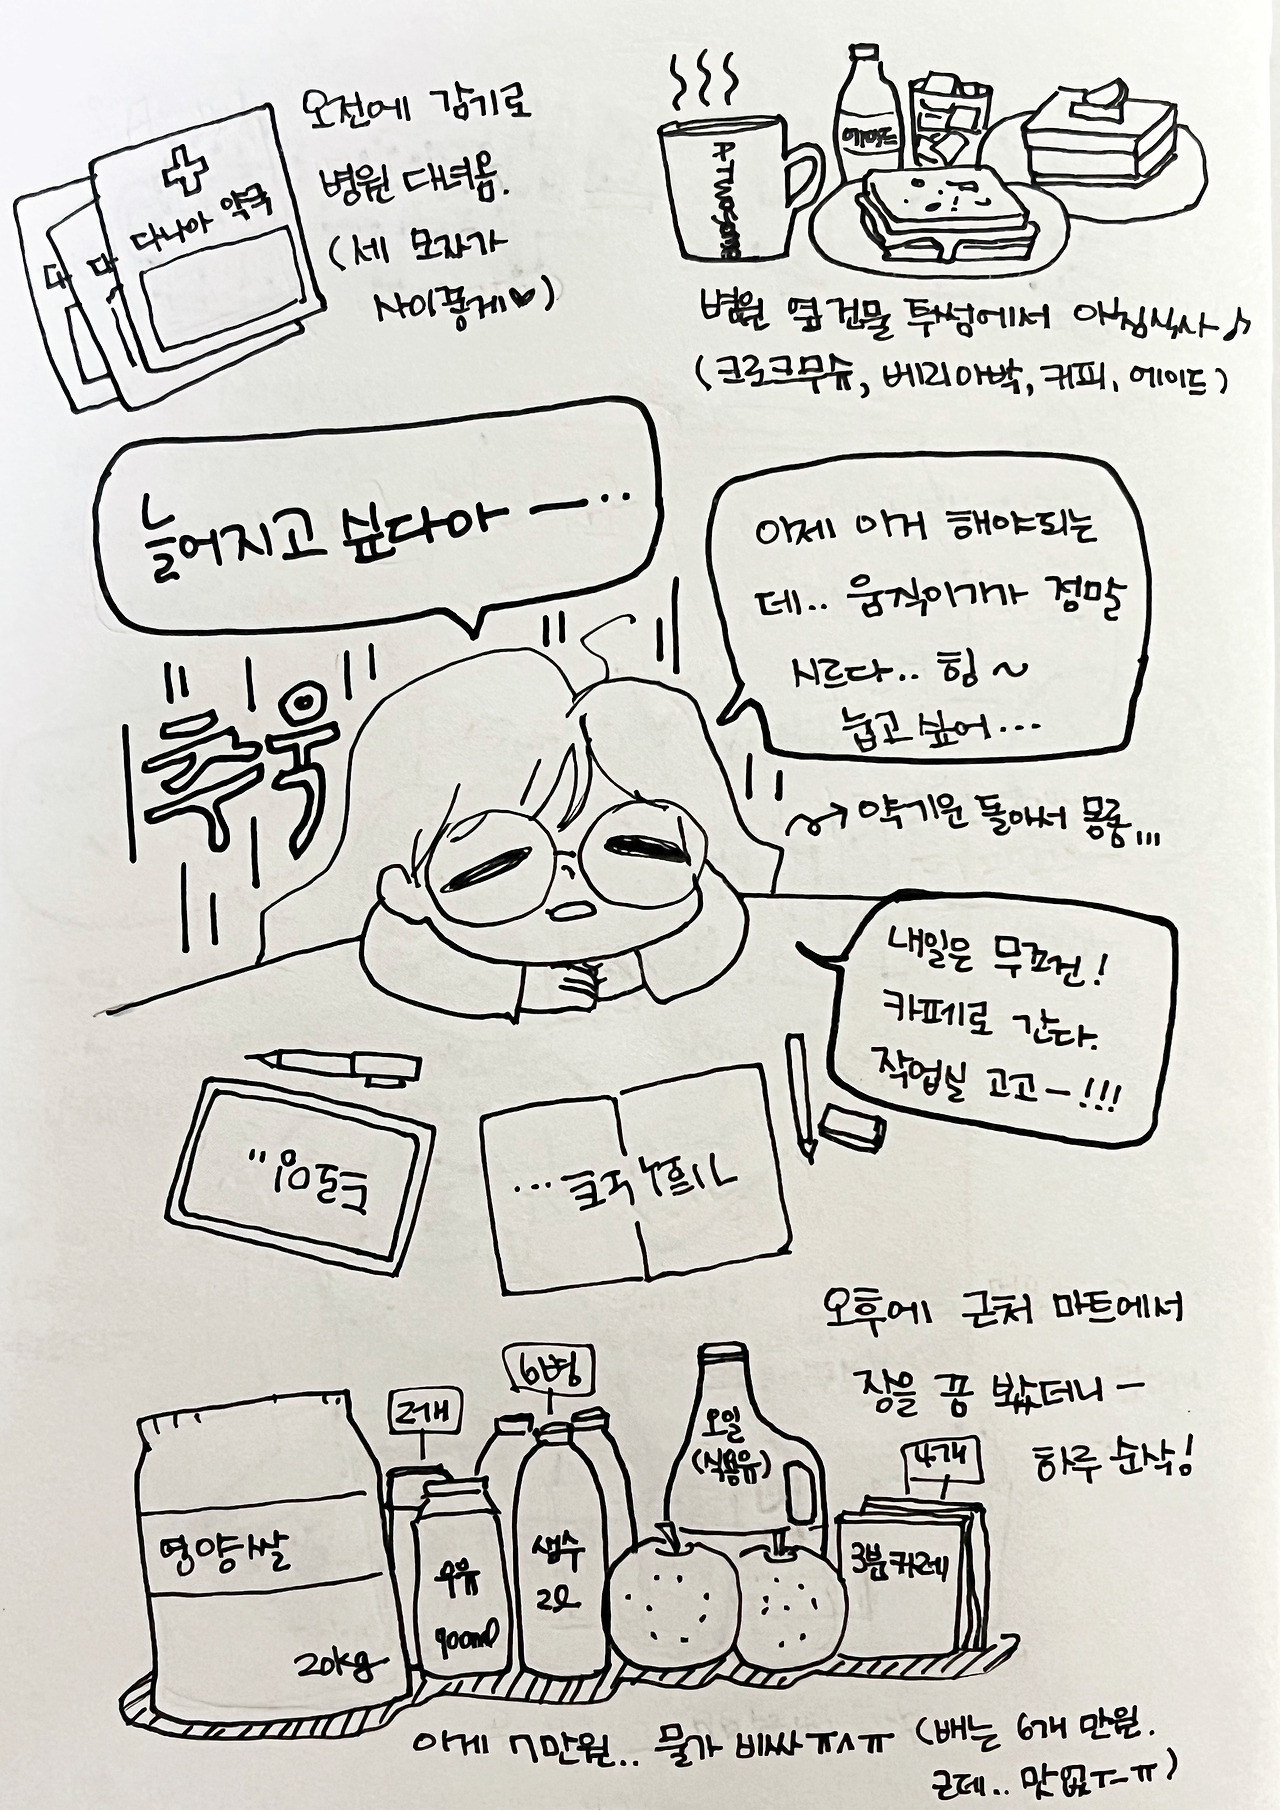 오전에 감기로
병원 다녀옴.
(세 모자가
사이좋게♥)
다나아 약국
다
다
에이드
A TWOsome
병원 옆 건물 투썸에서 아침식사♪
(크로크무슈, 베리아박, 커피, 에이드)
늘어지고 싶다아ㅡ··
이제 이거 해야되는
데.. 움직이기가 정말
시르다.. 힝~
눕고 싶어...
추욱
→ 약기운 돌아서 몽롱,,,
내일은 무조건!
카페로 간다.
작업실 고고-!!!
드로잉"
나혼자 노트...
오후에 근처 마트에서
장을 쫌 봤더니-
하루 순삭!
영양쌀
20kg
2개
우유
900ml
6병
생수
2l
오일
(식용유)
4개
3분카레
이게 7만원.. 물가 비싸ㅠㅅㅠ (배는 6개 만원.
근데.. 맛없ㅜㅡㅠ)